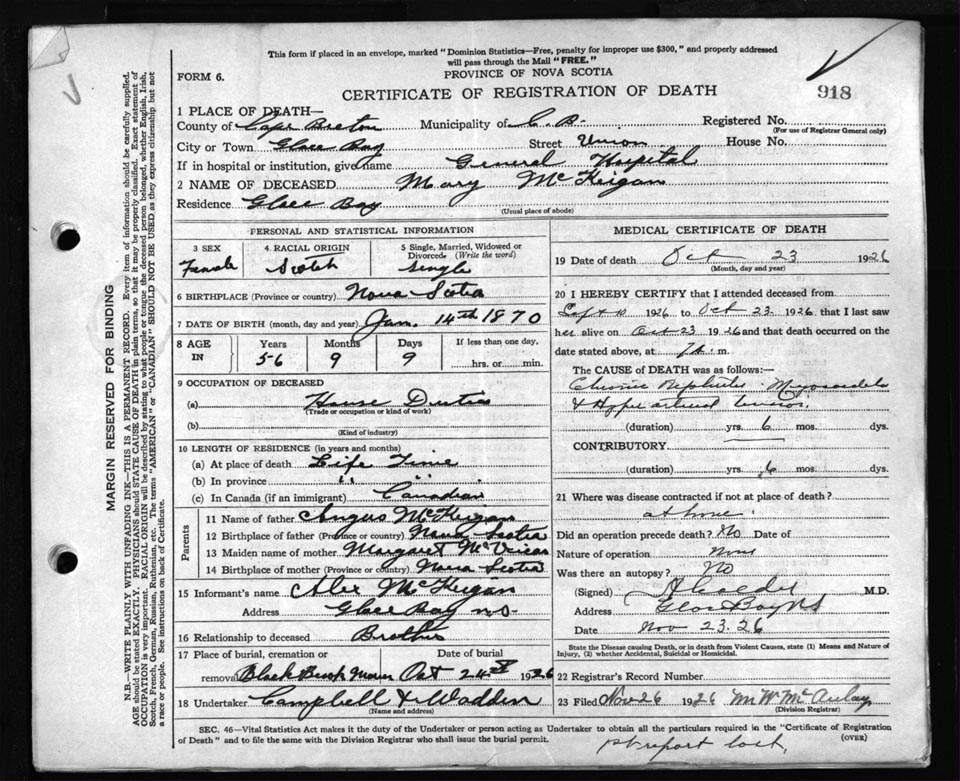 This form if placed in an envelope, marked "Dominion Statistics—Free, penalty for improper use $300," and properly addressed
will pass through the Mail "FREE."
FORM 6.
PROVINCE OF NOVA SCOTIA
CERTIFICATE OF REGISTRATION OF DEATH
918
1 PLACE OF DEATH—
County of Cape Breton Municipality of C. B. Registered No.
(For use of Registrar General only)
City or Town Glace Bay Street Union House No.
If in hospital or institution, give name General Hospital
2 NAME OF DECEASED Mary McKeigan
Residence Glace Bay
(Usual place of abode)
PERSONAL AND STATISTICAL INFORMATION
3 SEX
Female
4 RACIAL ORIGIN
Scotch
5 Single, Married, Widowed or
Divorced (Write the word)
Single
6 BIRTHPLACE (Province or country) Nova Scotia
7 DATE OF BIRTH (month, day and year) Jan. 14th 1870
8 AGE IN
Years Months Days If less than one day,
56 9 9 hrs. or min.
9 OCCUPATION OF DECEASED
(a) House Duties
(Trade or occupation or kind of work)
(b)
(Kind of industry)
10 LENGTH OF RESIDENCE (in years and months)
(a) At place of death Life Time
(b) In province " "
(c) In Canada (if an immigrant) Canadian
Parents
11 Name of father Angus McKeigan
12 Birthplace of father (Province or country) Nova Scotia
13 Maiden name of mother Margaret
14 Birthplace of mother (Province or country) Nova Scotia
15 Informant's name Alex McKeigan
Address Glace Bay
16 Relationship to deceased Brother
17 Place of burial, cremation or
removal Black Brook
Date of burial
Oct 24th 1926
18 Undertaker Campbell & Wadden
(Name and address)
MEDICAL CERTIFICATE OF DEATH
19 Date of death Oct 23 1926
(Month, day and year)
20 I HEREBY CERTIFY that I attended deceased from
Sept 10 1926 to Oct 23 1926 that I last saw
her alive on Oct 23 1926 and that death occurred on
date stated above, at m.
The CAUSE of DEATH was as follows:—
Chronic Nephritis
&
(duration) yrs. 6 mos. dys.
CONTRIBUTORY
(duration) yrs. 6 mos. dys.
21 Where was disease contracted if not at place of death?
at home
Did an operation precede death? No Date of
Nature of operation None
Was there an autopsy? No
(Signed) M.D.
Address Glace Bay NS
Date Nov 23. 26
State the Disease causing Death, or in death from Violent Causes, state (1) Means and Nature of
Injury, (2) whether Accidental, Suicidal or Homicidal.
22 Registrar's Record Number
23 Filed Nov 26 1926 M W McAulay
(Division Registrar)
SEC. 46—Vital Statistics Act makes it the duty of the Undertaker or person acting as Undertaker to obtain all the particulars required in the "Certificate of Registration
of Death" and to file the same with the Division Registrar who shall issue the burial permit.
(OVER)
report lost
MARGIN RESERVED FOR BINDING
N.B.—WRITE PLAINLY WITH UNFADING INK—THIS IS A PERMANENT RECORD. Every item of information should be carefully supplied.
AGE should be stated EXACTLY. PHYSICIANS should STATE CAUSE OF DEATH in plain terms, so that it may be properly classified. Exact statement of
OCCUPATION is very important. RACIAL ORIGIN will be described by stating to what people or tongue the deceased person belonged, whether English, Irish,
Scotch, French, German, Russian, Ruthenian, etc. The terms "AMERICAN" or "CANADIAN" SHOULD NOT BE USED as they express citizenship but not
a race or people. See instructions on back of Certificate.